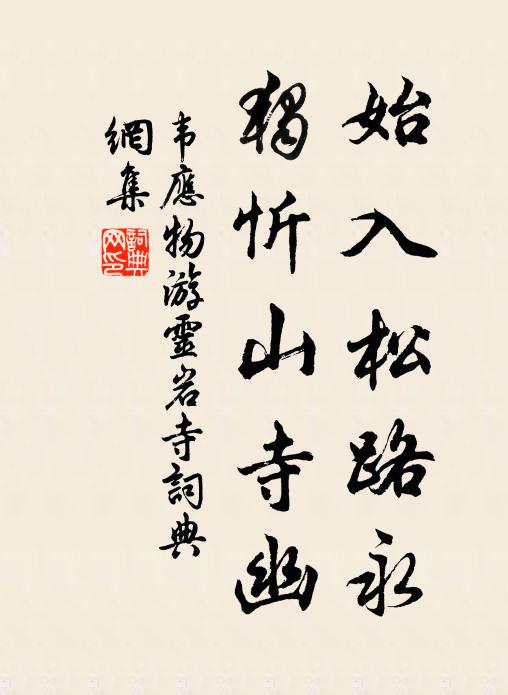 始入松路永
獨忻山寺幽
韦應物游靈岩寺詞典
網集
詞典
网印